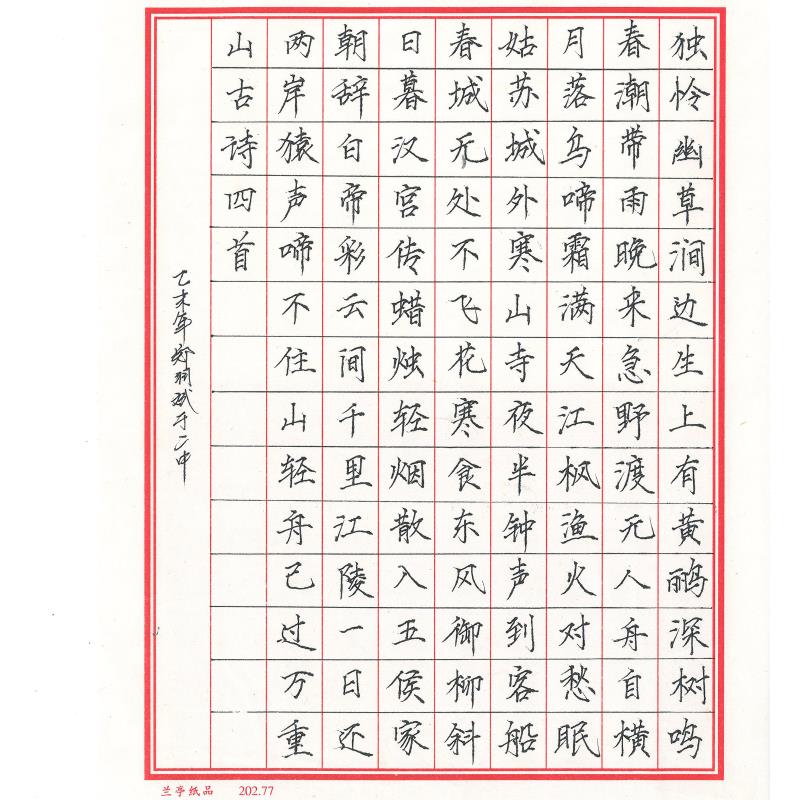 独怜幽草涧边生上有黄鹂深树鸣
春潮带雨晚来急野渡无人舟自横
月落乌啼霜满天江枫渔火对愁眠
姑苏城外寒山寺夜半钟声到客船
春城无处不飞花寒食东风御柳斜
日暮汉宫传蜡烛轻烟散入五侯家
朝辞白帝彩云间千里江陵一日还
两岸猿声啼不住山轻舟已过万重
山古诗四首
乙未年 于二中
兰亭纸品 202.77